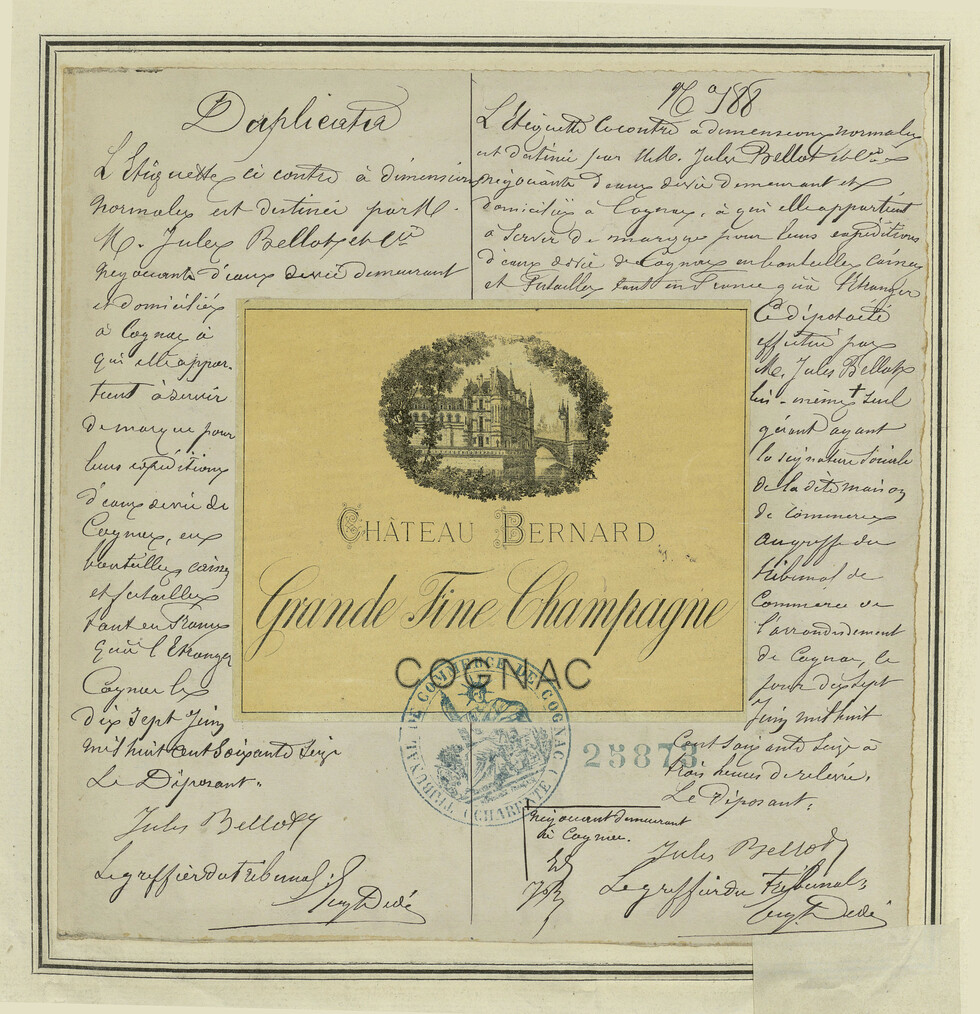 Duplicata
L'Etiquette ci contre à dimensions
normales est destinée par M.
M. Jules Bellot et Cie
negociants d'eaux devie demeurant
et domiciliés
à Cognac à
qui elle appar-
tient à servir
de marque pour
leurs expéditions
d'eaux devie de
Cognac, en
bouteilles, caisses
et futailles
tant en France
qu'à l'Etranger
Cognac le
dix Sept Juin
mil huit cent Soixante Seize
Le Déposant.
Jules Bellot
Le greffier du tribunal:
No 788
L'Etiquette ci contre à dimensions normales
est destinée par M.M. Jules Bellot et Cie
negociants d'eaux devie demeurant et
domiciliés à Cognac, à qui elle appartient
à Servir de marque pour leurs expéditions
d'eaux devie de Cognac en bouteilles caisses
et futailles tant en France qu'à l'Etranger
Ce dépot a été
effectué par
M. Jules Bellot
lui-même + seul
gérant ayant
la signature Sociale
de la dite maison
de Commerce
au greffe du
tribunal de
Commerce de
l'arrondissement
de Cognac, le
jour dix Sept
Juin mil huit
Cent Soixante Seize à
trois heures de relevée.
Le Déposant:
Jules Bellot
Le greffier du Tribunal:
+ negociant demeurant
à Cognac.
CHÂTEAU BERNARD
Grande Fine Champagne
COGNAC
TRIBUNAL DE COMMERCE DE COGNAC (CHARENTE)
25873